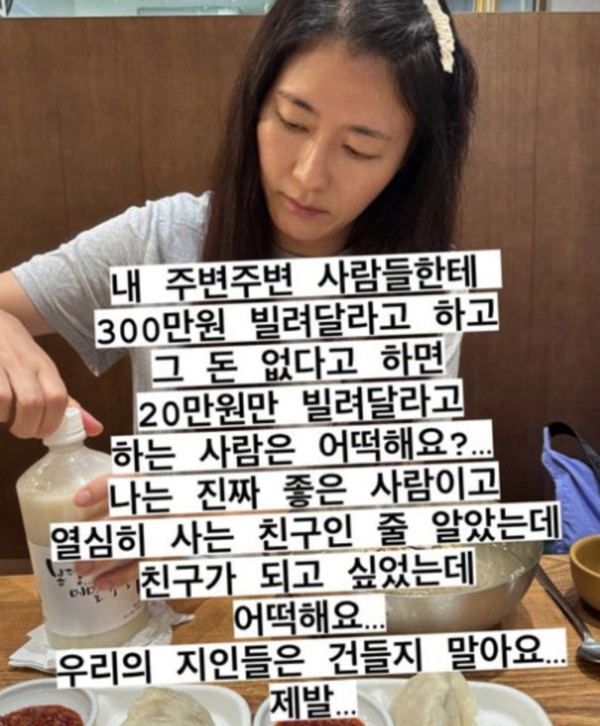 내 주변주변 사람들한테
300만원 빌려달라고 하고
그 돈 없다고 하면
20만원만 빌려달라고
하는 사람은 어떡해요?...
나는 진짜 좋은 사람이고
열심히 사는 친구인 줄 알았는데
친구가 되고 싶었는데
어떡해요...
우리의 지인들은 건들지 말아요...
제발...